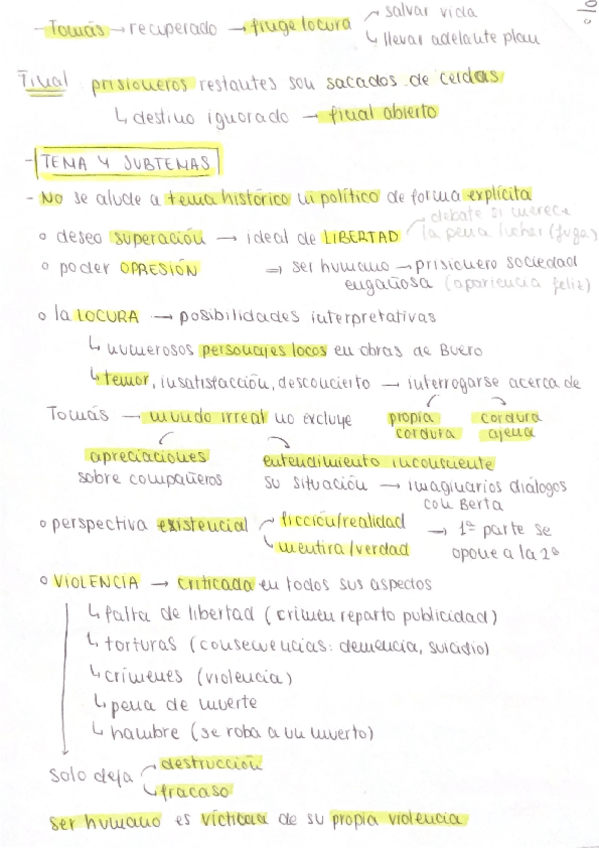 salvar vida
- Tomás → recuperado → finge locura
↳ llevar adelante plan
Final prisioneros restantes son sacados de celdas
↳ destino ignorado → final abierto
- TEMA Y SUBTEMAS
- No se alude a tema histórico ni político de forma explícita
debate si merece
o deseo superación → ideal de LIBERTAD la pena luchar (fuga)
o poder OPRESIÓN ⇒ ser humano → prisionero sociedad
engañosa (apariencia feliz)
o la LOCURA → posibilidades interpretativas
↳ numerosos personajes locos en obras de Buero
↳ temor, insatisfacción, desconcierto → interrogarse acerca de
Tomás → mundo irreal no excluye propia cordura
cordura ajena
apreciaciones entendimiento inconsciente
sobre compañeros su situación → imaginarios diálogos
con Berta
o perspectiva existencial ficción/realidad → 1ª parte se
mentira/verdad opone a la 2ª
o VIOLENCIA → criticada en todos sus aspectos
↳ falta de libertad (crimen reparto publicidad)
↳ torturas (consecuencias: demencia, suicidio)
↳ crímenes (violencia)
↳ pena de muerte
↳ hambre (se roba a un muerto)
solo deja destrucción
fracaso
ser humano es víctima de su propia violencia